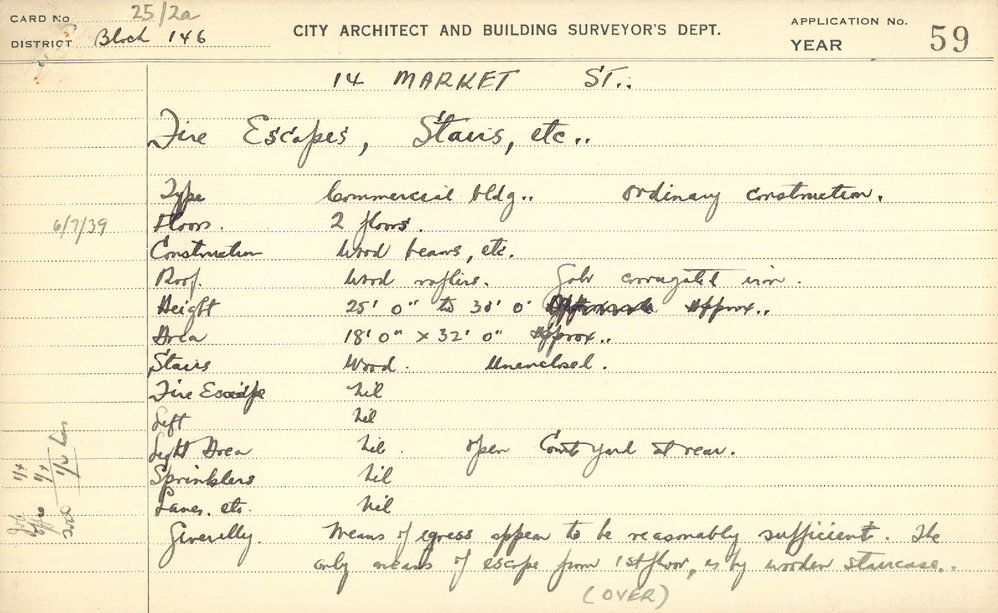 CARD No 25/2a
DISTRICT Block 146
CITY ARCHITECT AND BUILDING SURVEYOR'S DEPT.
APPLICATION No.
YEAR 59
14 MARKET ST..
Fire Escapes, Stairs, etc..
Type Commercial bldg.. Ordinary construction.
6/7/39
Floors. 2 floors.
Construction Wood beams, etc.
Roof. Wood rafters. Galv corrugated iron.
Height 25' 0" to 30' 0" Approx..
Area 18' 0" x 32' 0" Approx..
Stairs Wood. Unenclosed.
Fire Escape Nil
Lift Nil
Light Area Nil. Open Court Yard at rear.
Sprinklers Nil
Lanes. etc Nil
Generally. Means of egress appear to be reasonably sufficient. The
only means of escape from 1st floor, is by wooden staircase..
(OVER)